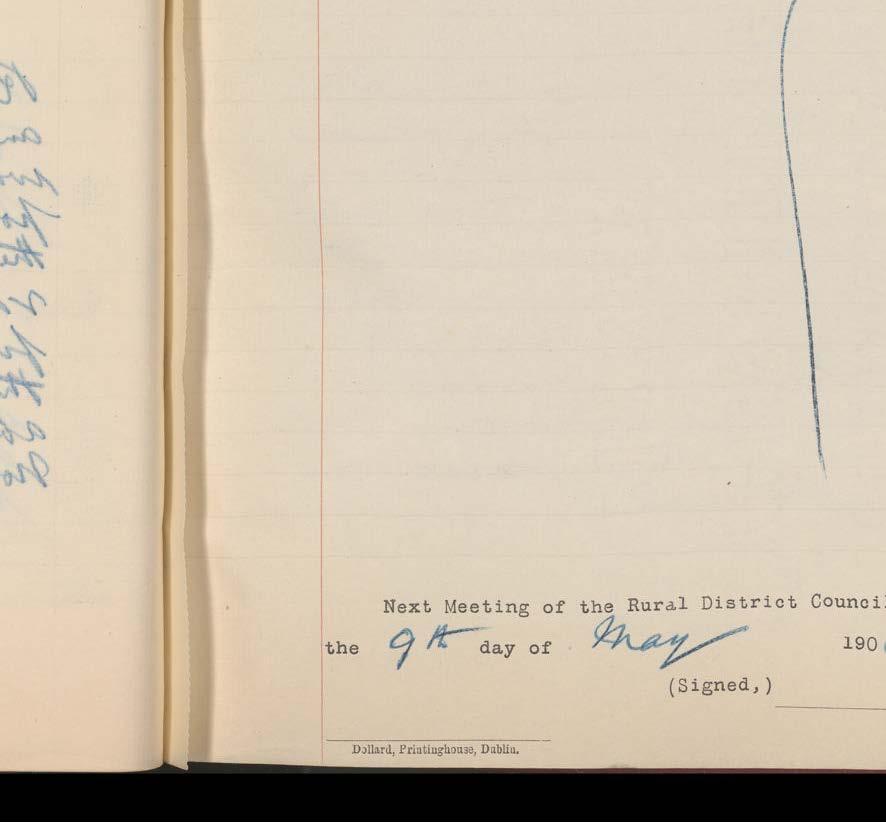 Next Meeting of the Rural District Council
the 9th day of May 190
(Signed,)
Dollard, Printinghouse, Dublin.